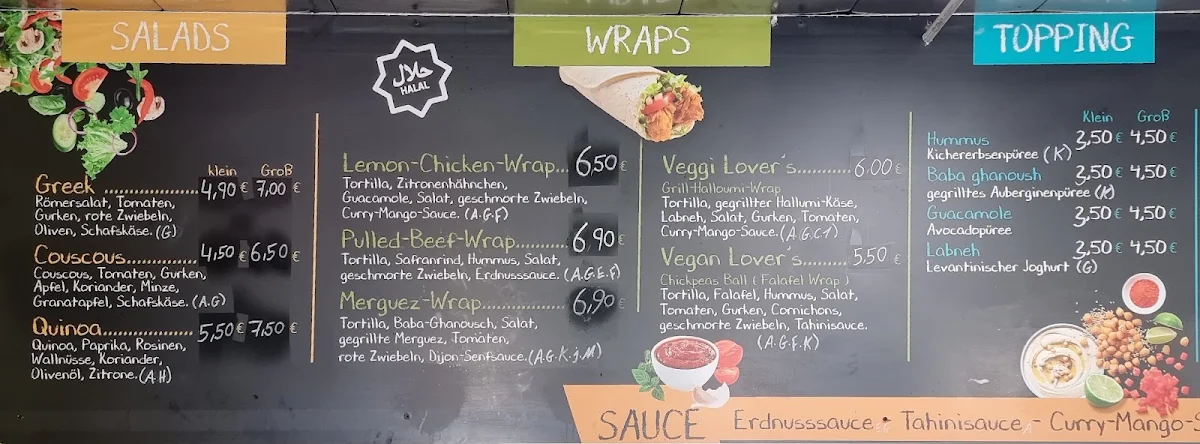 SALADS
klein Groß
Greek .................. 4,90 € 7,00 €
Römersalat, Tomaten,
Gurken, rote Zwiebeln,
Oliven, Schafskäse. (G)
Couscous............. 4,50 € 6,50 €
Couscous, Tomaten, Gurken,
Apfel, Koriander, Minze,
Granatapfel, Schafskäse. (A.G)
Quinoa................. 5,50 € 7,50 €
Quinoa, Paprika, Rosinen,
Wallnüsse, Koriander,
Olivenöl, Zitrone. (A.H)
حلال
HALAL
WRAPS
Lemon-Chicken-Wrap... 6,50 €
Tortilla, Zitronenhähnchen,
Guacamole, Salat, geschmorte Zwiebeln,
Curry-Mango-Sauce. (A.G.F)
Pulled-Beef-Wrap.......... 6,90 €
Tortilla, Safranrind, Hummus, Salat,
geschmorte Zwiebeln, Erdnusssauce. (A.G.E.F)
Merguez-Wrap................ 6,90 €
Tortilla, Baba-Ghanousch, Salat,
gegrillte Merguez, Tomaten,
rote Zwiebeln, Dijon-Senfsauce. (A.G.K.J.M)
Veggi Lover's.......... 6.00 €
Grill-Halloumi-Wrap
Tortilla, gegrillter Hallumi-Käse,
Labneh, Salat, Gurken, Tomaten,
Curry-Mango-Sauce. (A,G,C1)
Vegan Lover's......... 5.50 €
Chickpeas Ball ( Falafel Wrap )
Tortilla, Falafel, Hummus, Salat,
Tomaten, Gurken, Cornichons,
geschmorte Zwiebeln, Tahinisauce.
(A.G.F.K)
TOPPING
Klein Groß
Hummus 3,50 € 4,50 €
Kichererbsenpüree (K)
Baba ghanoush 3,50 € 4,50 €
gegrilltes Auberginenpüree (K)
Guacamole 3,50 € 4,50 €
Avocadopüree
Labneh 3,50 € 4,50 €
Levantinischer Joghurt (G)
SAUCE Erdnusssauce - Tahinisauce - Curry-Mango-S